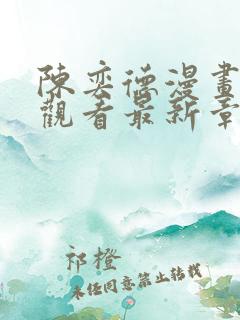 陳奕德漫畫
觀看最新章
祁橙
未經同意禁止轉載